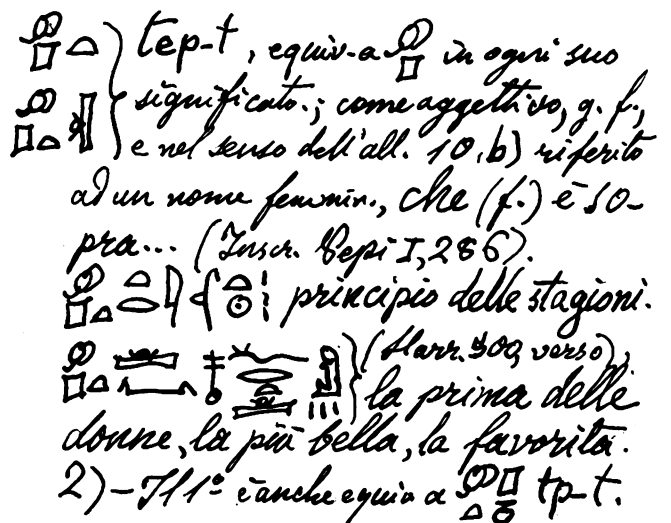 tep-t, equiv. a in ogni suo
significato.; come aggettivo, g. f.,
e nel senso dell'all. 10, b) riferito
ad un nome femmin., che (f.) è so-
pra... (Inscr. Pepi I, 286).
principio delle stagioni.
(Harr. 500, verso),
la prima delle
donne, la più bella, la favorita.
2) - Il 1º è anche equiv a tp-t.